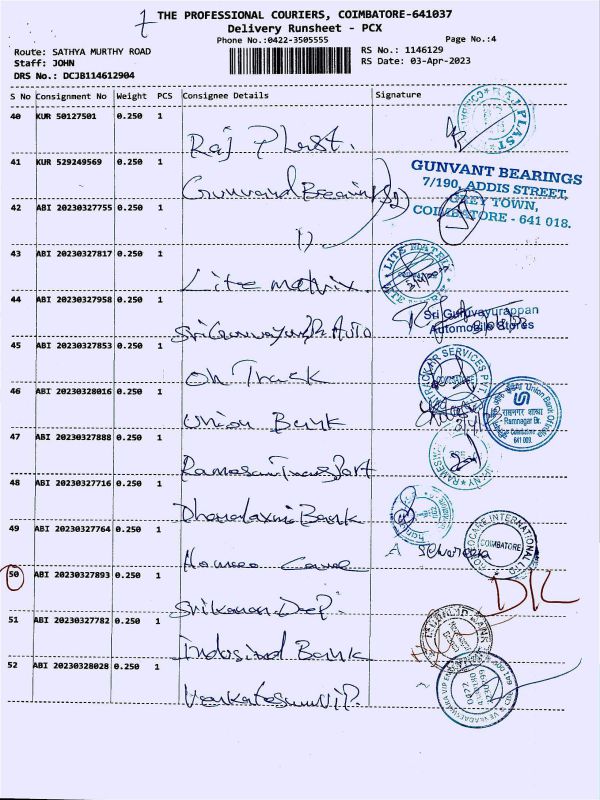 THE PROFESSIONAL COURIERS, COIMBATORE-641037
Delivery Runsheet - PCX
Phone No.:0422-3505555
Page No.:4
Route: SATHYA MURTHY ROAD
RS No.: 1146129
Staff: JOHN
RS Date: 03-Apr-2023
DRS No.: DCJB114612904
S No Consignment No Weight PCS Consignee Details Signature
40 KUR 50127501 0.250 1
Raj Plast.
RAJ PLAST
41 KUR 529249569 0.250 1
GUNVANT BEARINGS
7/190, ADDIS STREET,
GREY TOWN,
COIMBATORE - 641 018.
42 ABI 20230327755 0.250 1
43 ABI 20230327817 0.250 1
Lite matrix.
44 ABI 20230327958 0.250 1
Sri Guruvayurappan
Automobile Stores
45 ABI 20230327853 0.250 1
On Track
46 ABI 20230328016 0.250 1
Union Bank
Union Bank Of India
Ramnagar Br.
Coimbatore
641 009.
47 ABI 20230327888 0.250 1
48 ABI 20230327716 0.250 1
Dhanalaxmi Bank
49 ABI 20230327764 0.250 1
COIMBATORE
50 ABI 20230327893 0.250 1
51 ABI 20230327782 0.250 1
Indusind Bank
52 ABI 20230328028 0.250 1